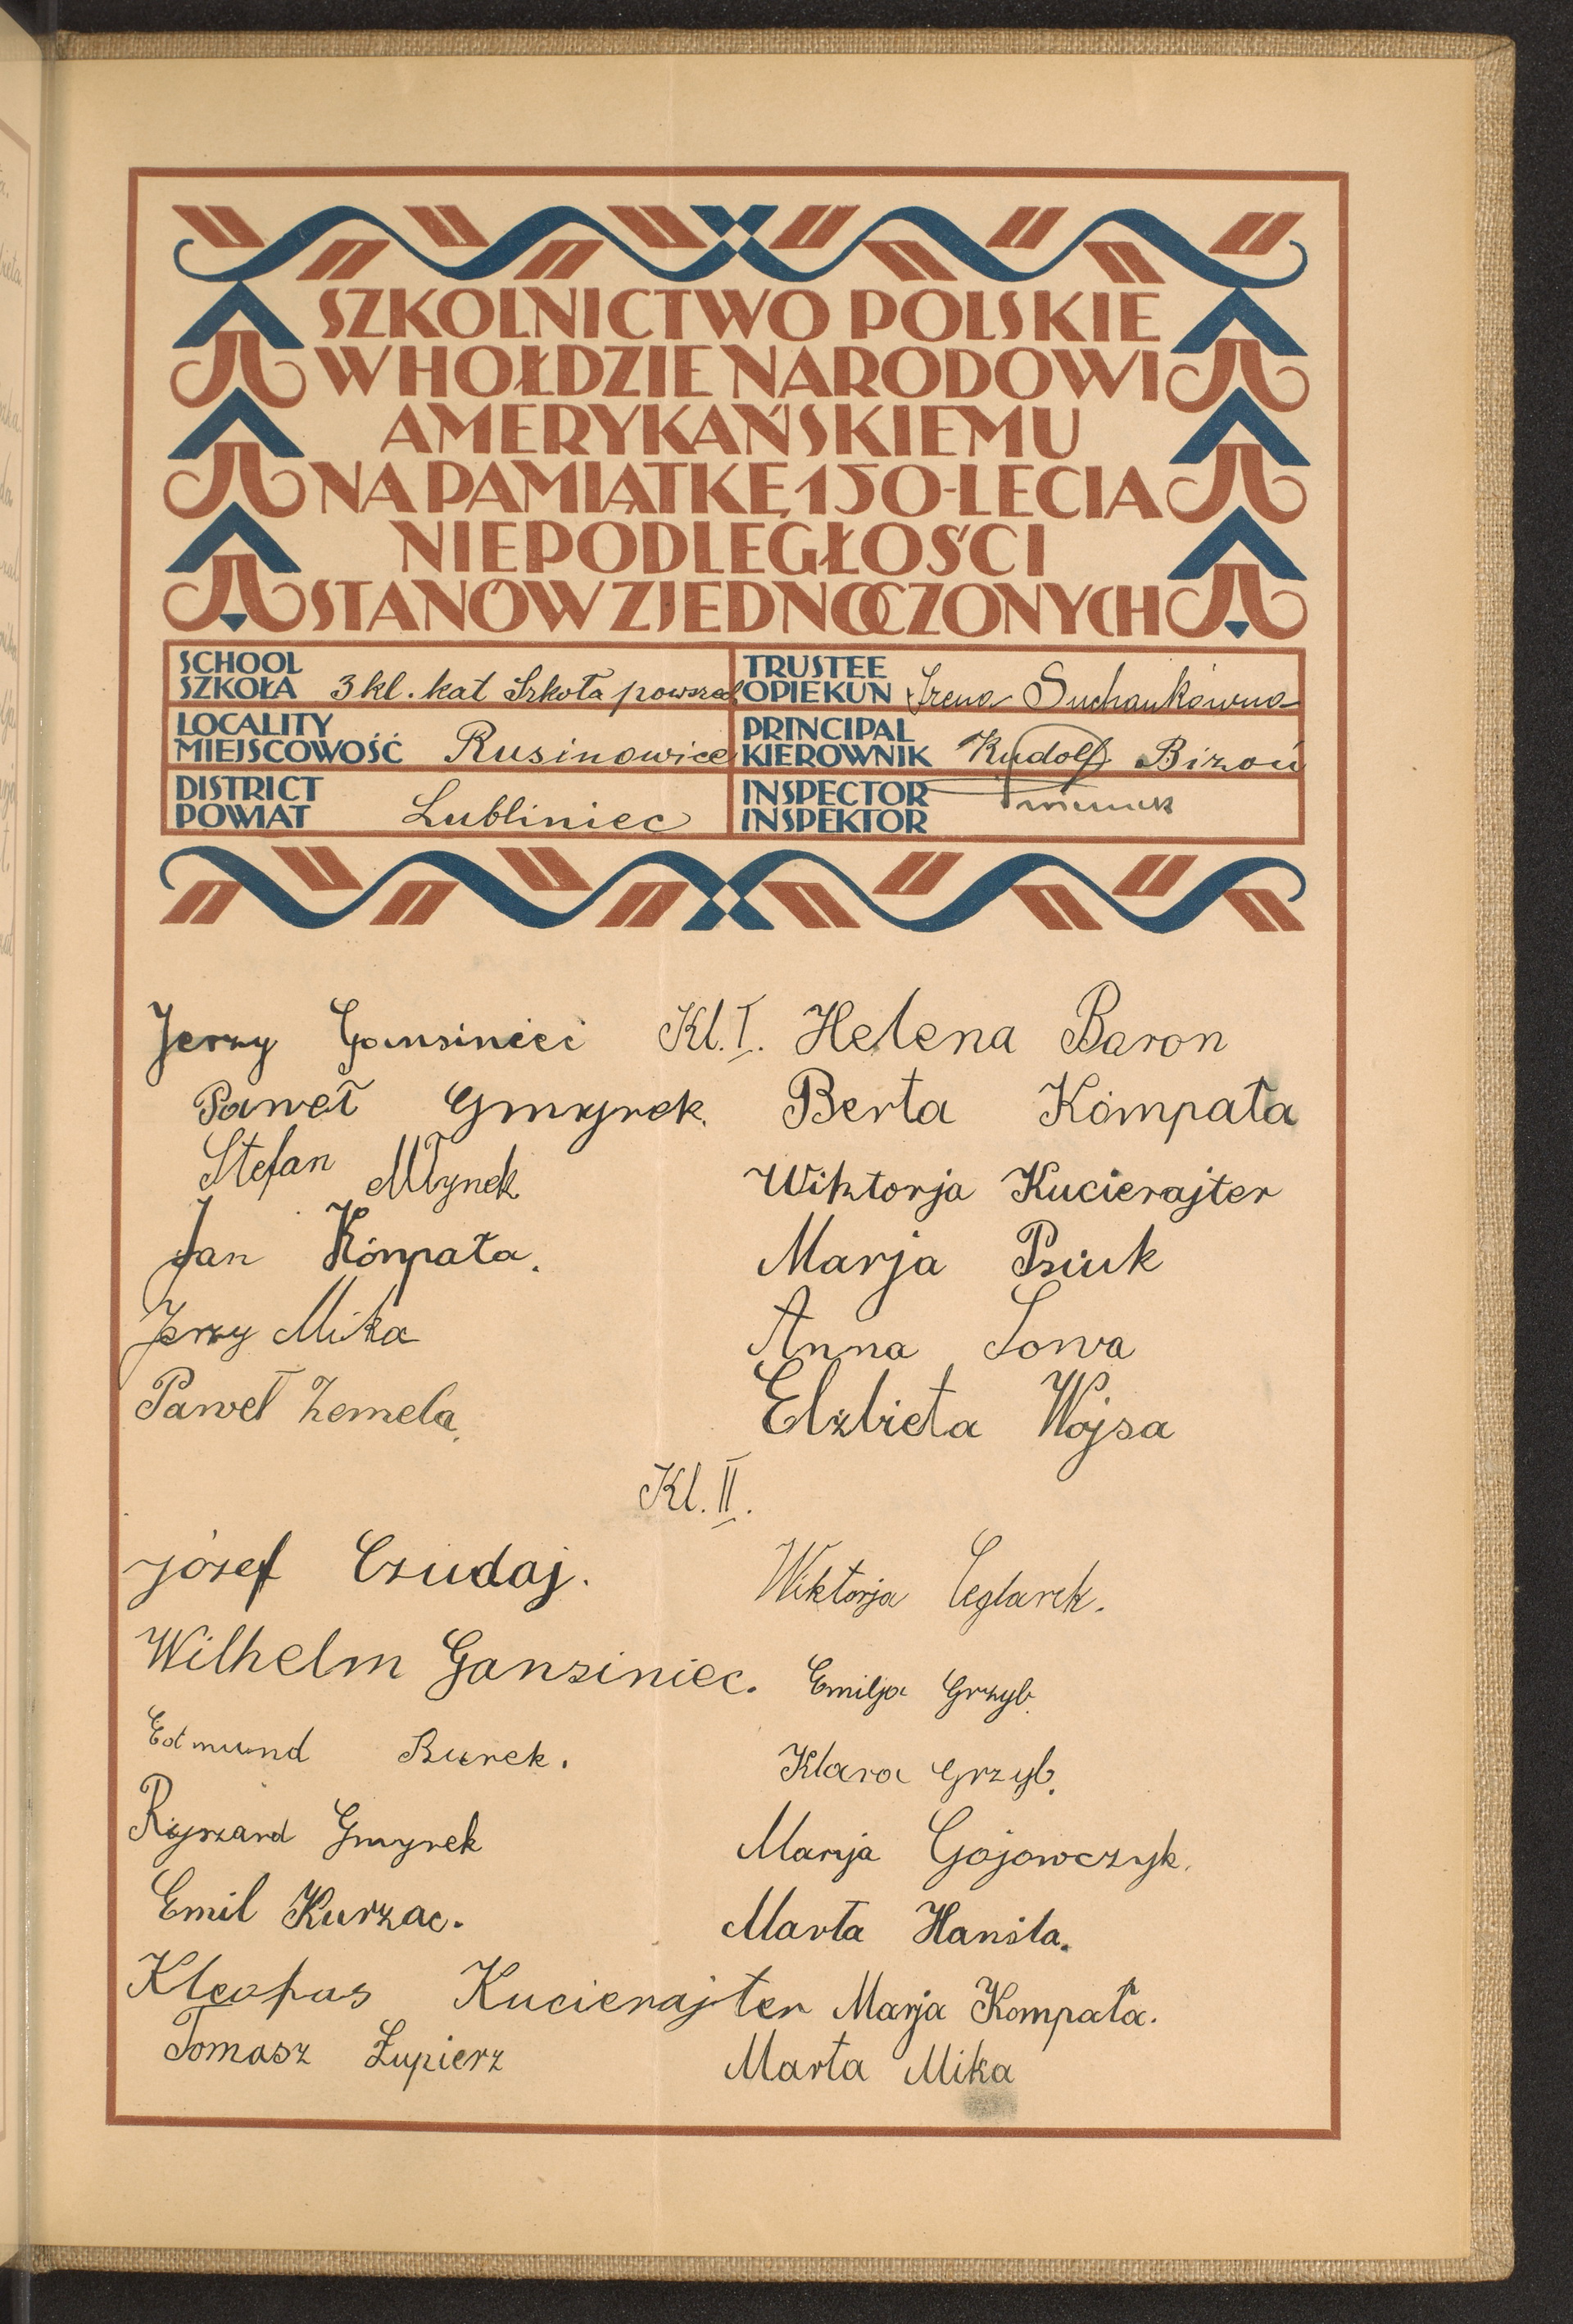 SZKOLNICTWO POLSKIE
W HOŁDZIE NARODOWI
AMERYKAŃSKIEMU
NA PAMIĄTKĘ 150-LECIA
NIEPODLEGŁOŚCI
STANÓW ZJEDNOCZONYCH
SCHOOL
SZKOŁA 3 kl. kat Szkoła powszed
LOCALITY
MIEJSCOWOŚĆ Rusinowice
DISTRICT
POWIAT Lubliniec
TRUSTEE
OPIEKUN Irena Suchankówna
PRINCIPAL
KIEROWNIK Rudolf Bizoń
INSPECTOR
INSPEKTOR
Kl. I.
Jerzy Gansinieci
Paweł Gmyrek.
Stefan Młynek
Jan Kómpała.
Jerzy Mika
Paweł Zemela.
Helena Baron
Berta Kómpała
Wiktorja Kucierajter
Marja Psiuk
Anna Sowa
Elżbieta Wojsa
Kl. II.
Józef Czudaj.
Wilhelm Gansiniec.
Edmund Burek.
Ryszard Gmyrek
Emil Kurzac.
Kleofas Kucierajter
Tomasz Łupierz
Wiktorja Ceglarek.
Emilja Grzyb.
Klara Grzyb.
Marija Gojowczyk.
Marta Hanśla.
Marja Kompała.
Marta Mika